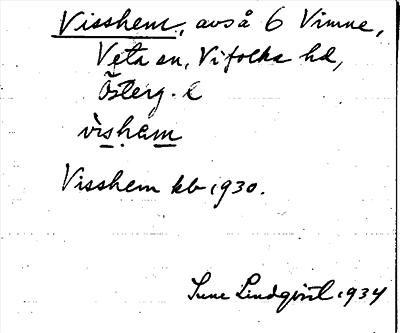 Visshem, avs å 6 Vimne,
Veta sn, Vifolka hd,
Österg. l
vìs̠ham̠
Visshem kb 1930.
Sune Lindqvist 1934